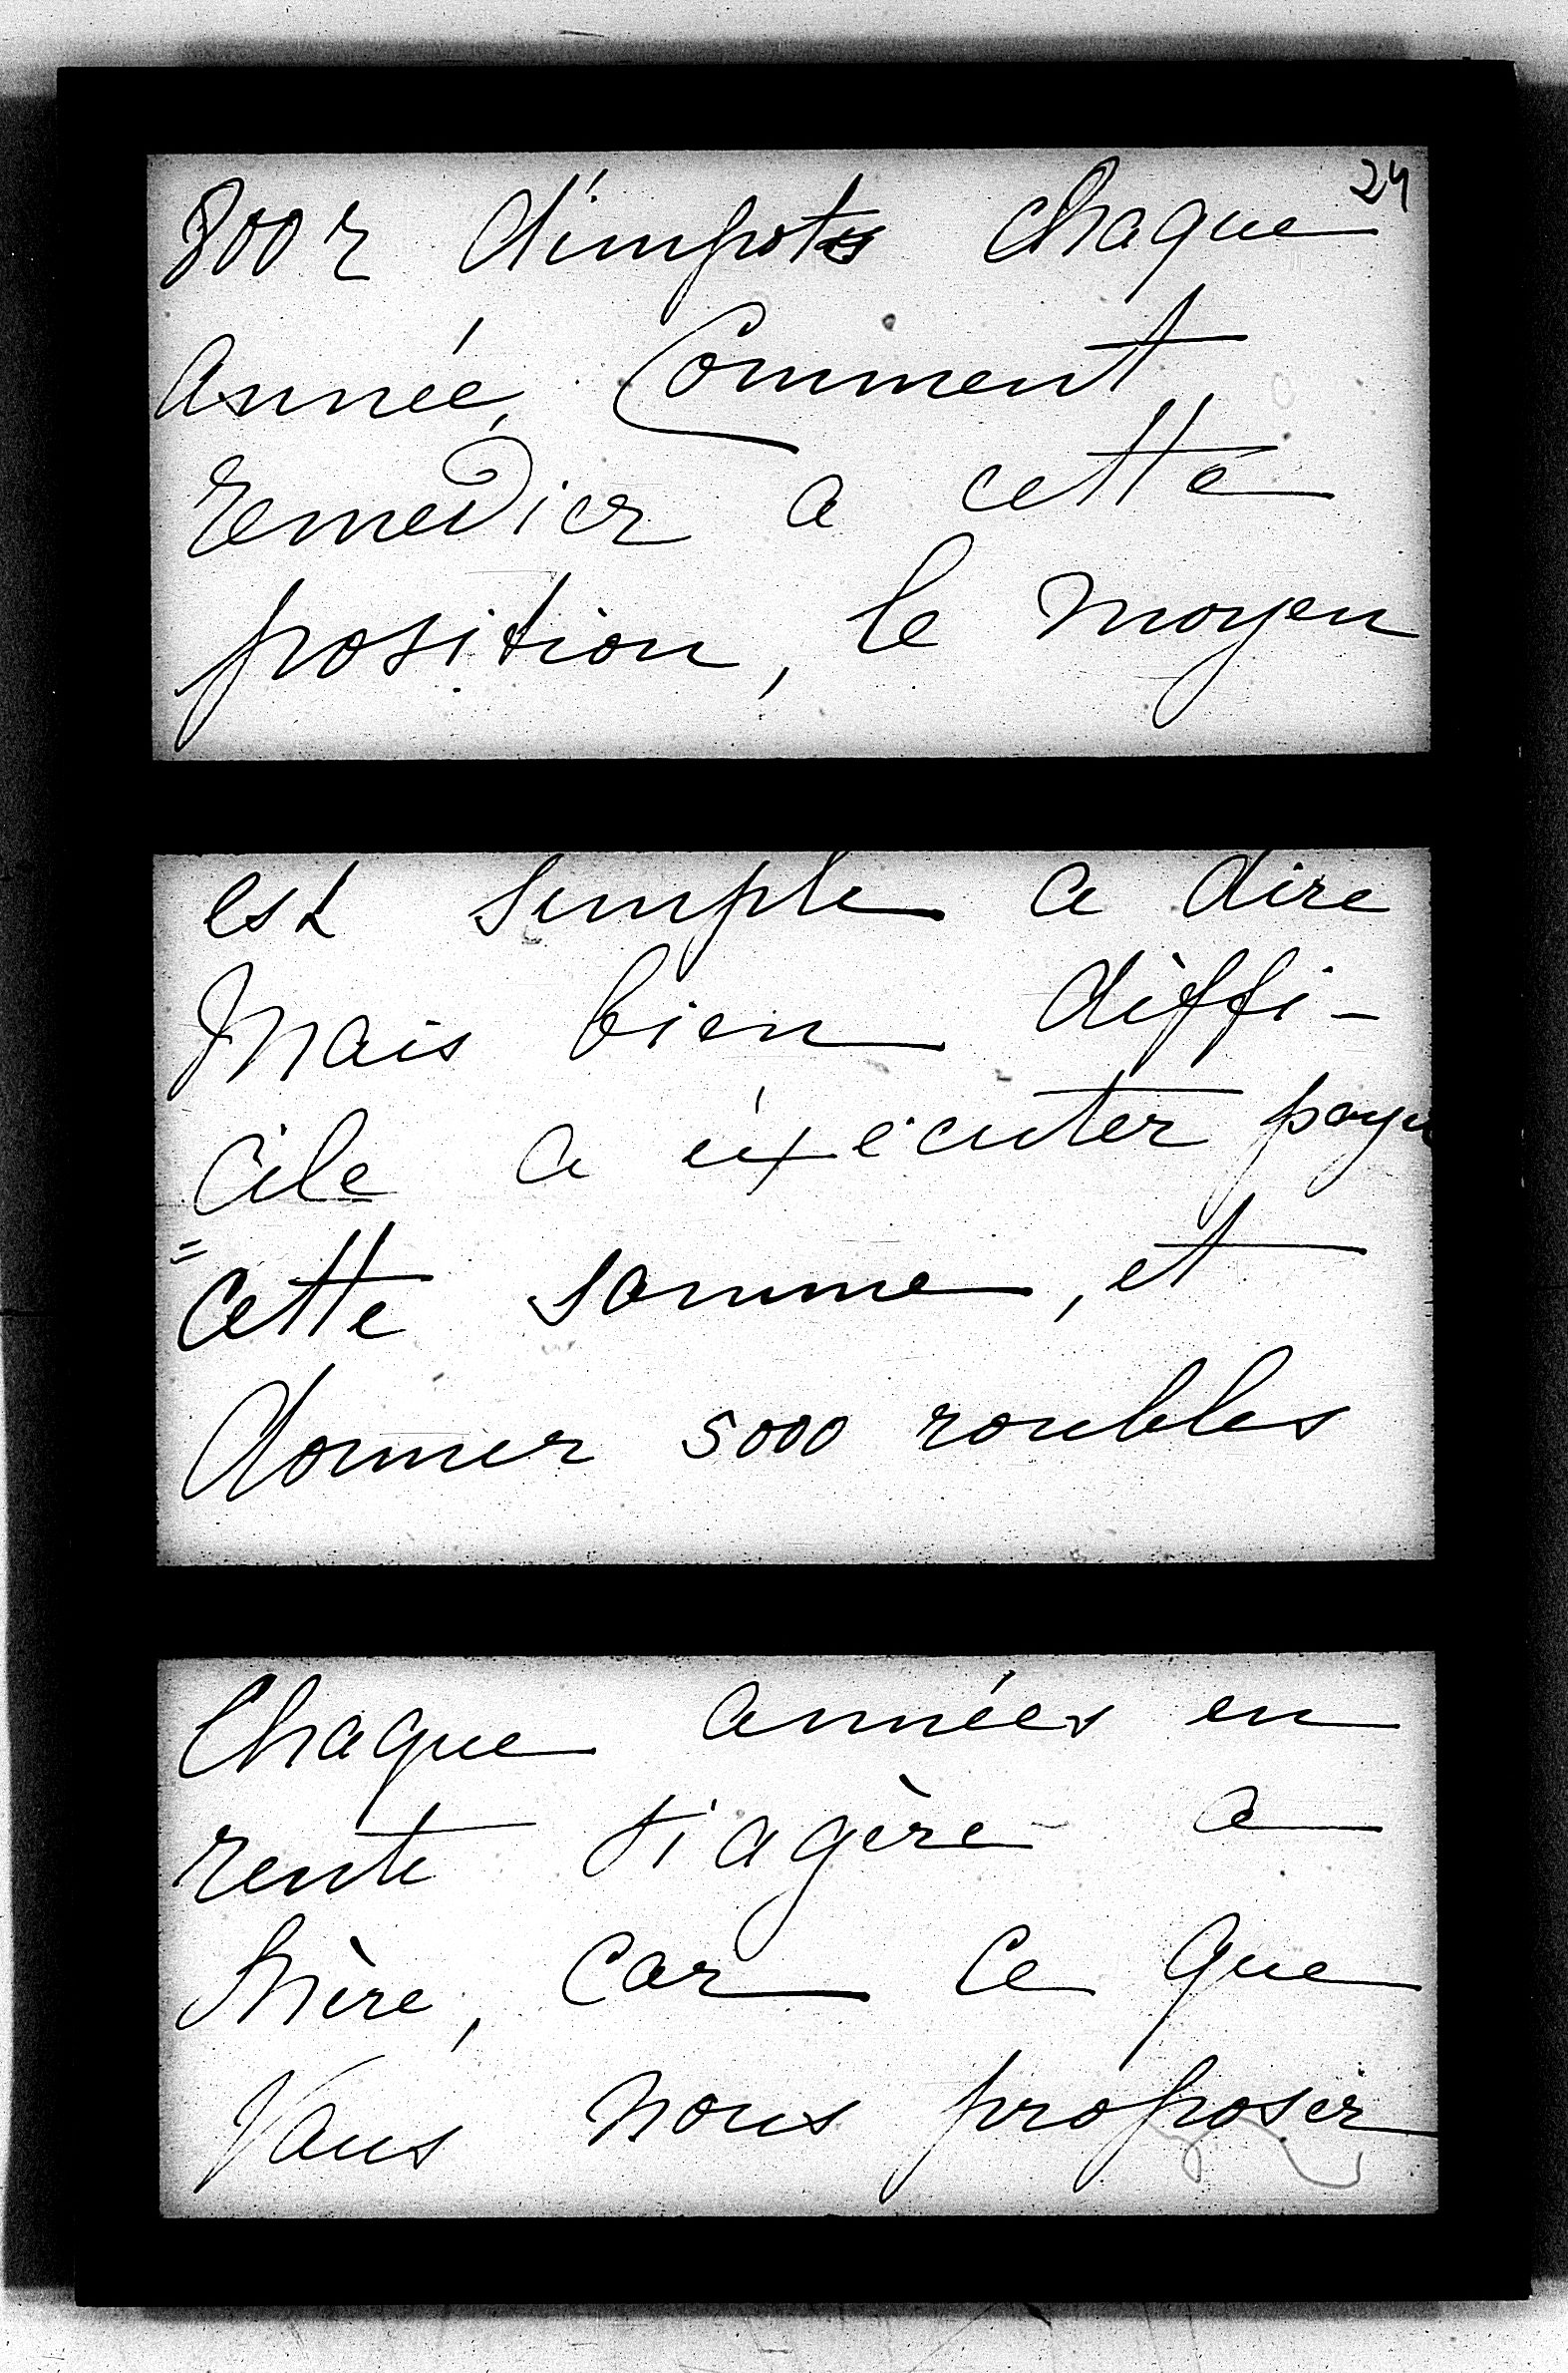 24
800 r d'impots chaque
Année, Comment
remedier a cette
position, le moyen
est simple a dire
Mais bien diffi-
cile a éxecuter payer
=cette somme, et
donner 5000 roubles
Chaque années en
rente viagère a
Mère, Car Ce que
Vous nous proposer